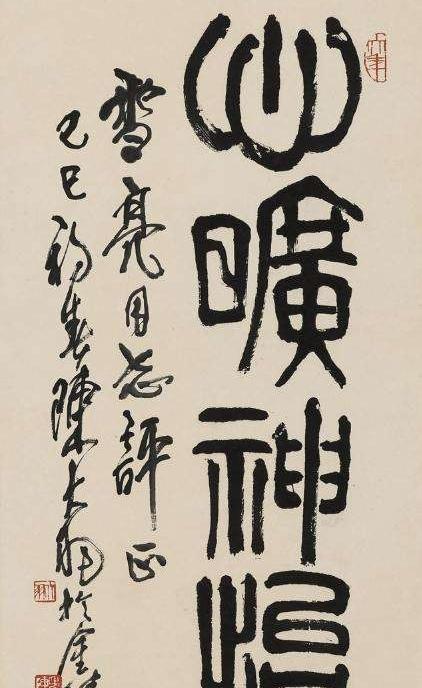 心曠神怡
雪亮同志評正
己巳初春陳大羽於金